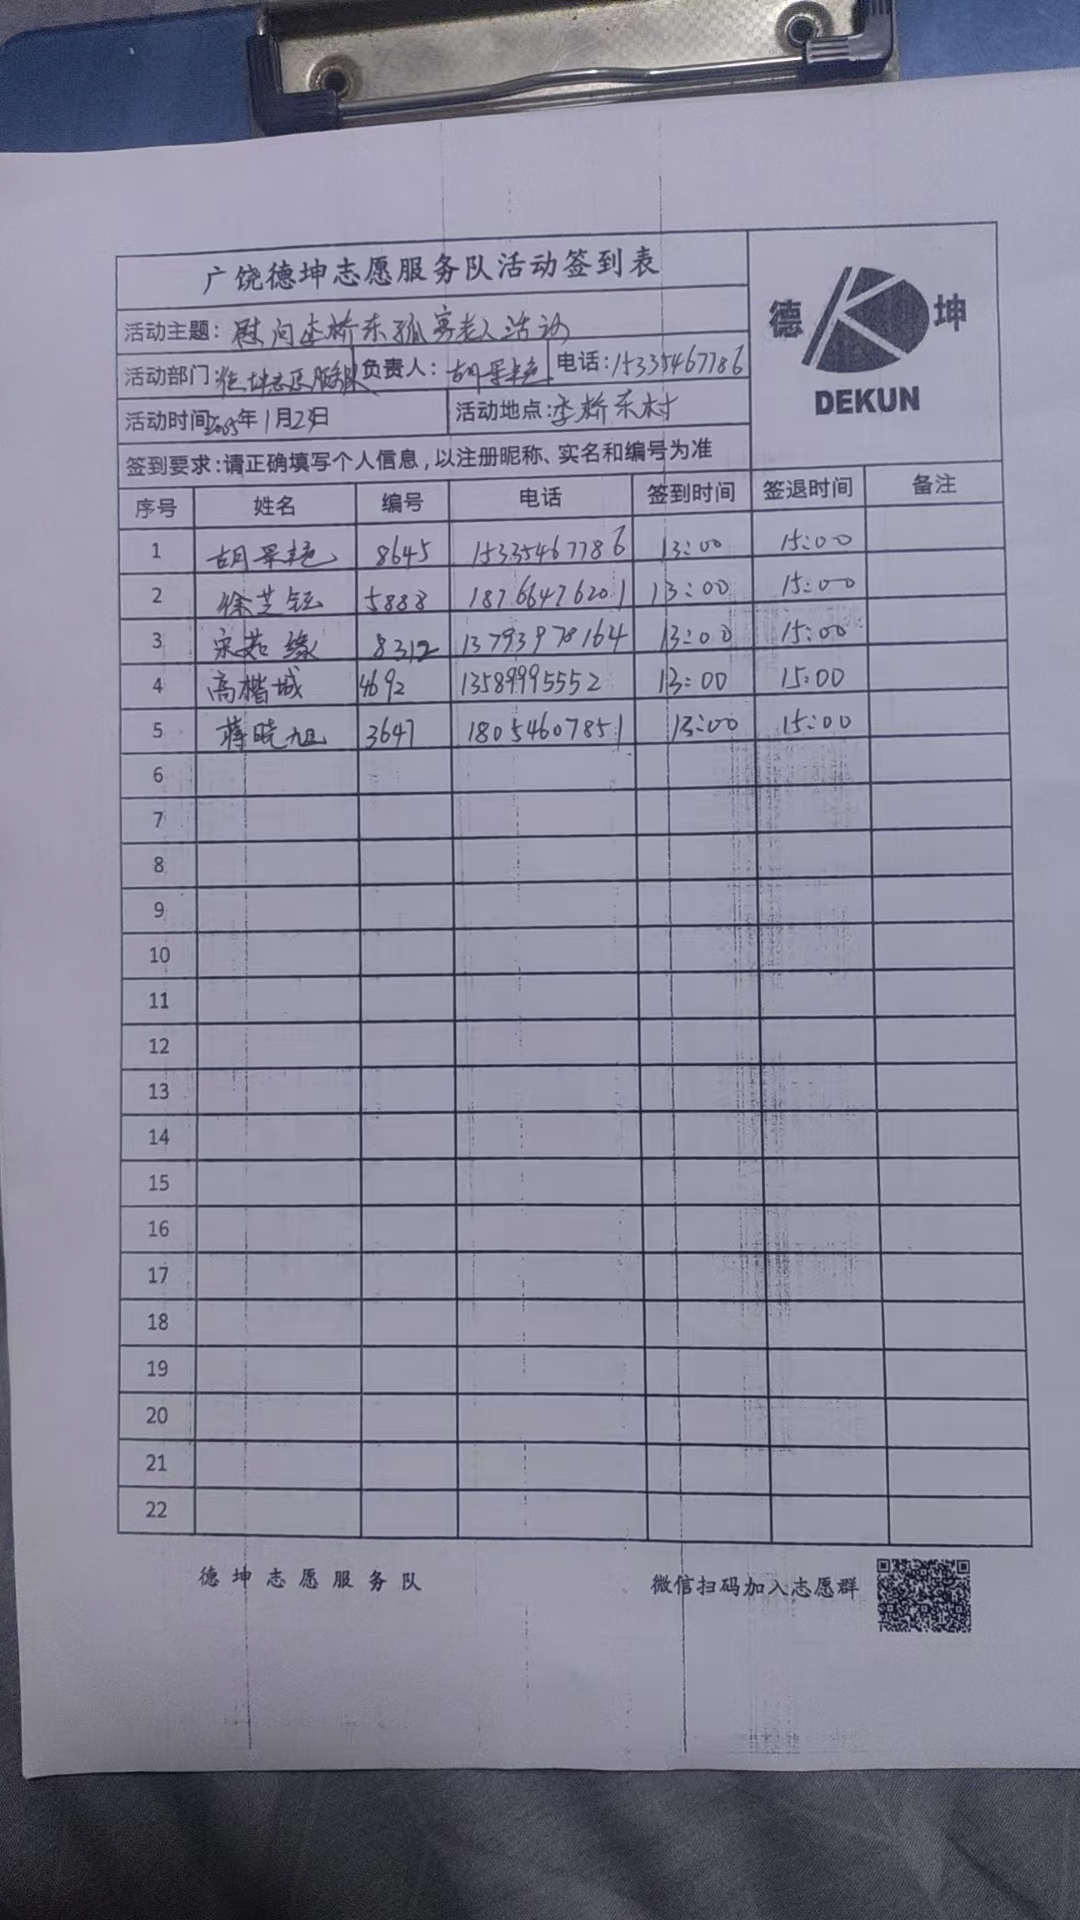 广饶德坤志愿服务队活动签到表
德 坤
DEKUN
活动主题：慰问李桥东孤寡老人活动
活动部门 德坤志愿服务队 负责人：胡景艳 电话：15335467786
活动时间 年1月23日 活动地点：李桥东村
签到要求：请正确填写个人信息，以注册昵称、实名和编号为准
序号 姓名 编号 电话 签到时间 签退时间 备注
1 胡景艳 8645 15335467786 13:00 15:00
2 徐芝钰 5888 18766476201 13:00 15:00
3 宋茹缘 8312 13793978164 13:00 15:00
4 高楷城 4692 13589995552 13:00 15:00
5 蒋晓旭 3647 18054607851 13:00 15:00
6
7
8
9
10
11
12
13
14
15
16
17
18
19
20
21
22
德坤志愿服务队 微信扫码加入志愿群